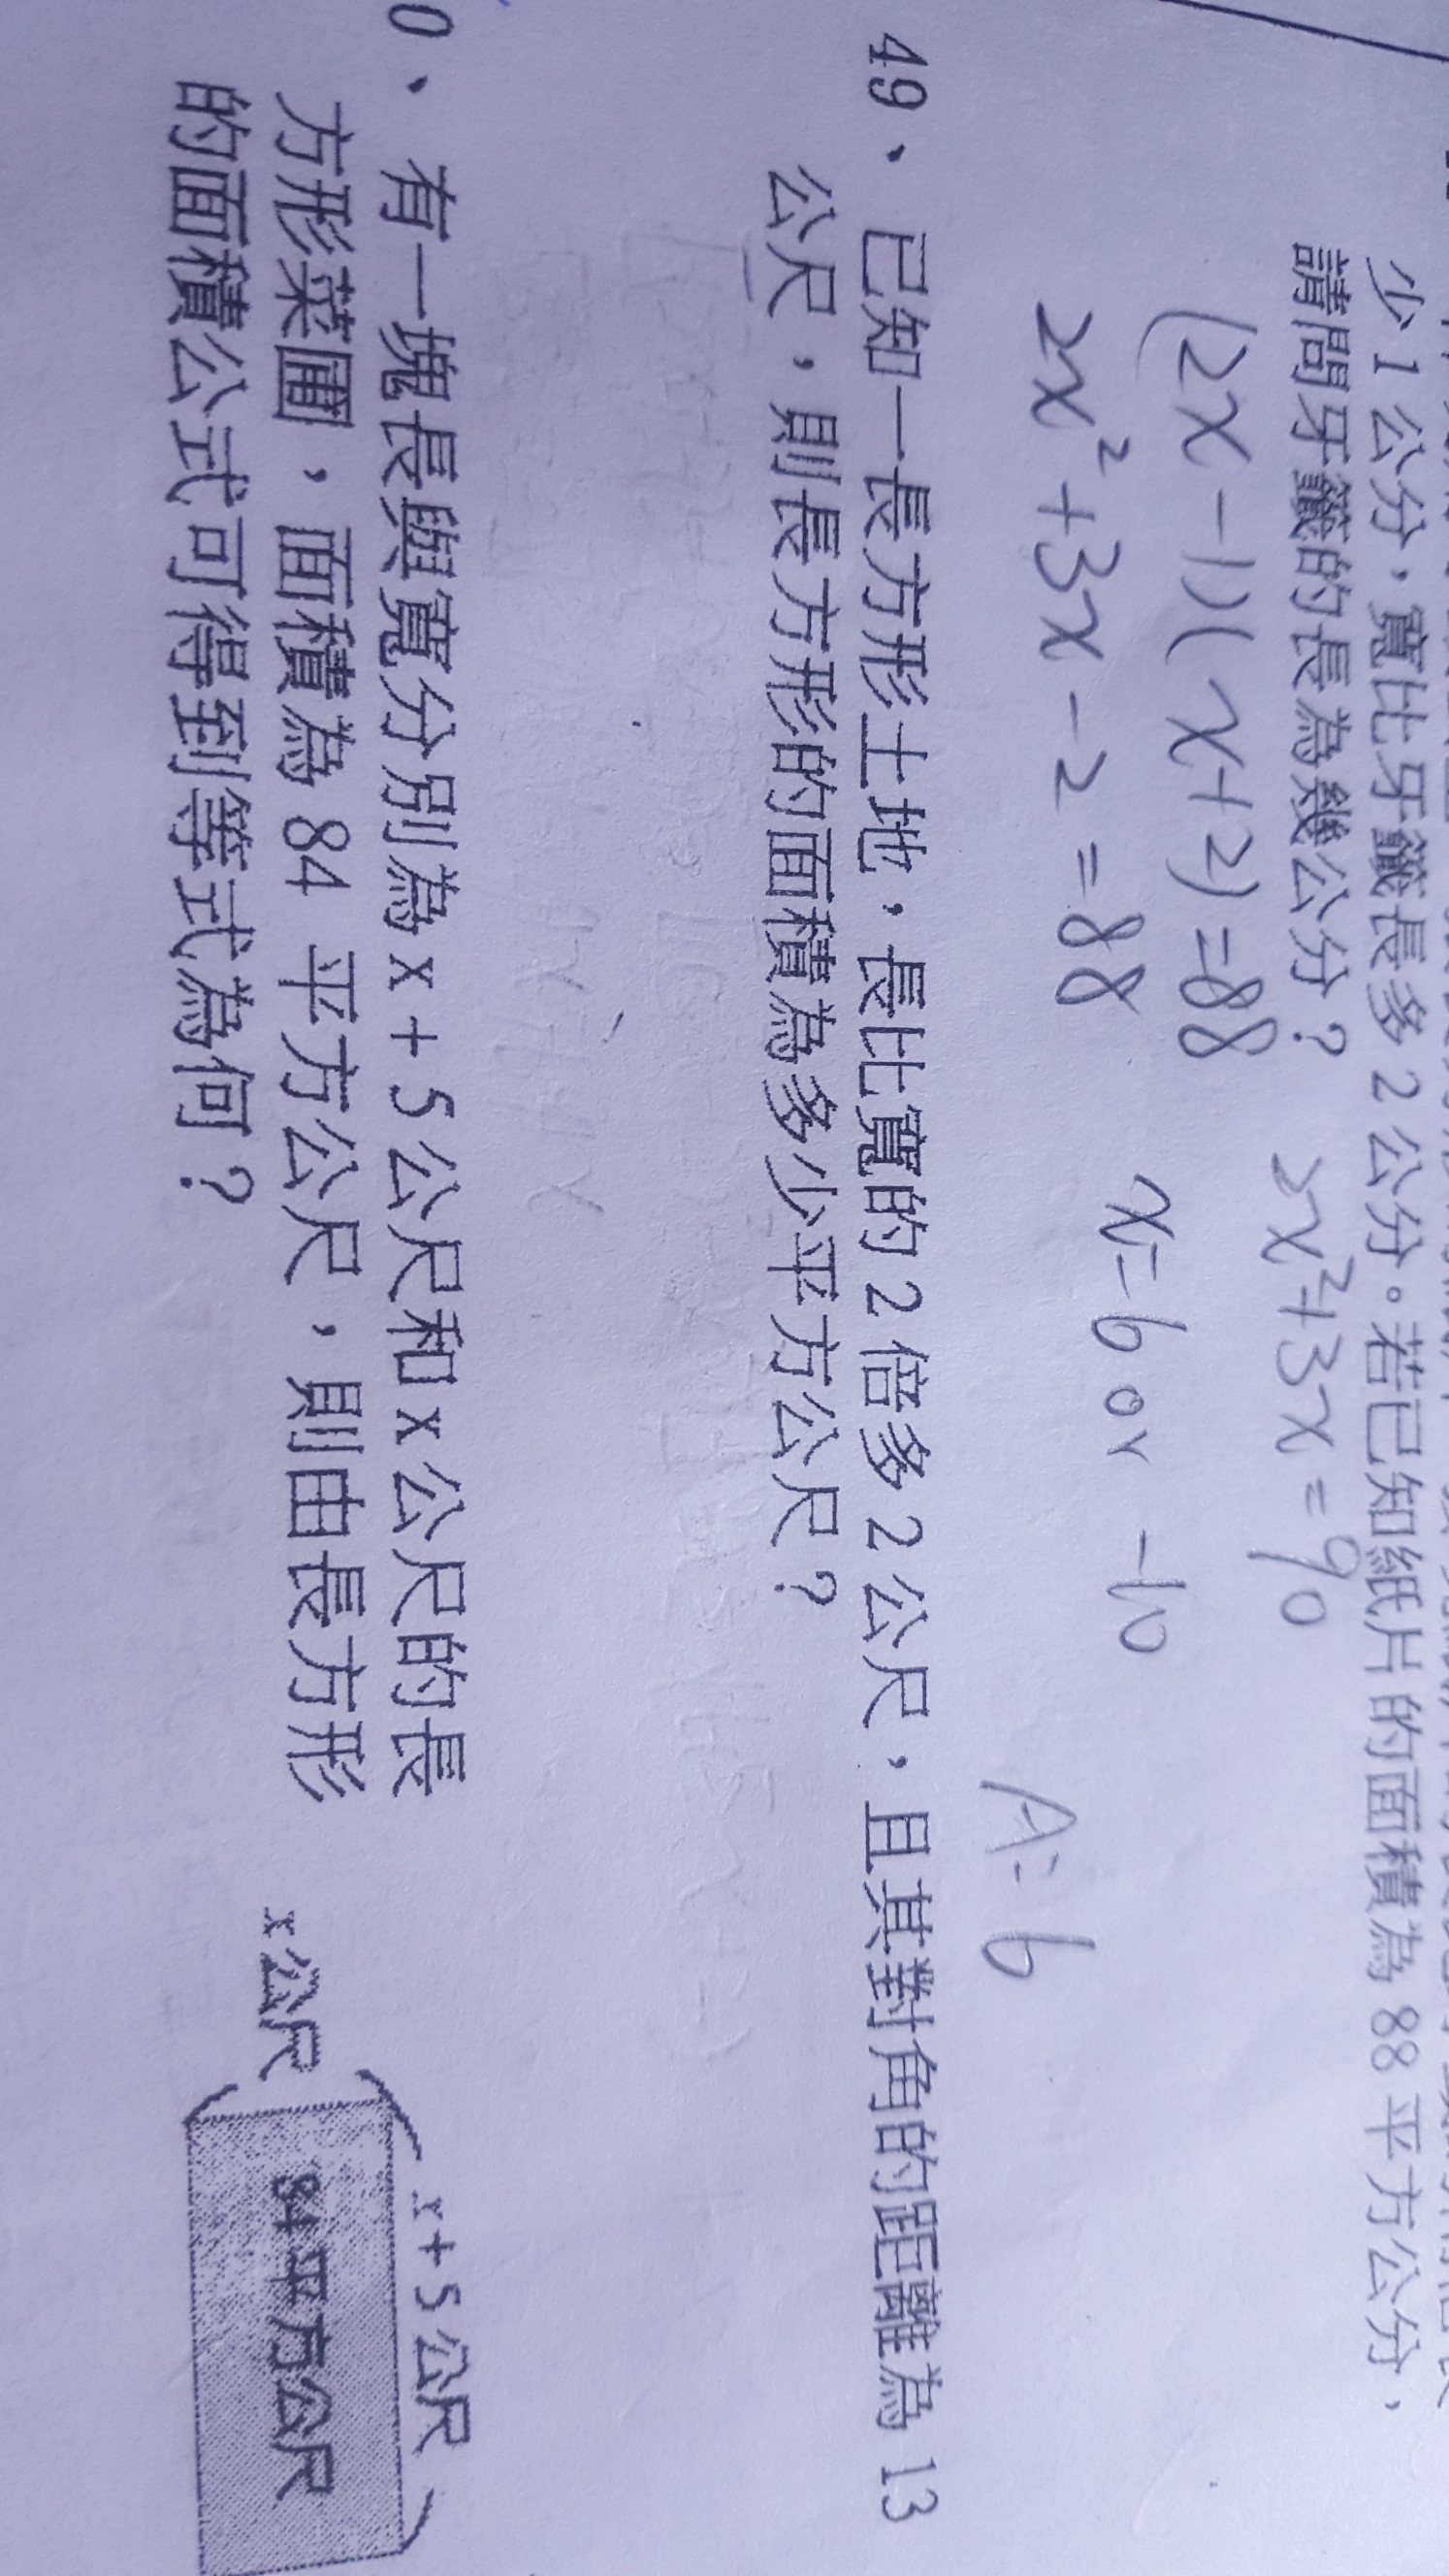 少1公分，寬比牙籤長多2公分。若已知紙片的面積為88平方公分，
請問牙籤的長為幾公分？
2x²+3x=90
(2x-1)(x+2)=88
2x²+3x-2=88
x=6 or -10
A:6
49、已知一長方形土地，長比寬的2倍多2公尺，且其對角的距離為13
公尺，則長方形的面積為多少平方公尺？
0、有一塊長與寬分別為x+5公尺和x公尺的長
方形菜圃，面積為84平方公尺，則由長方形
的面積公式可得到等式為何？
x+5公尺
x公尺
84平方公尺